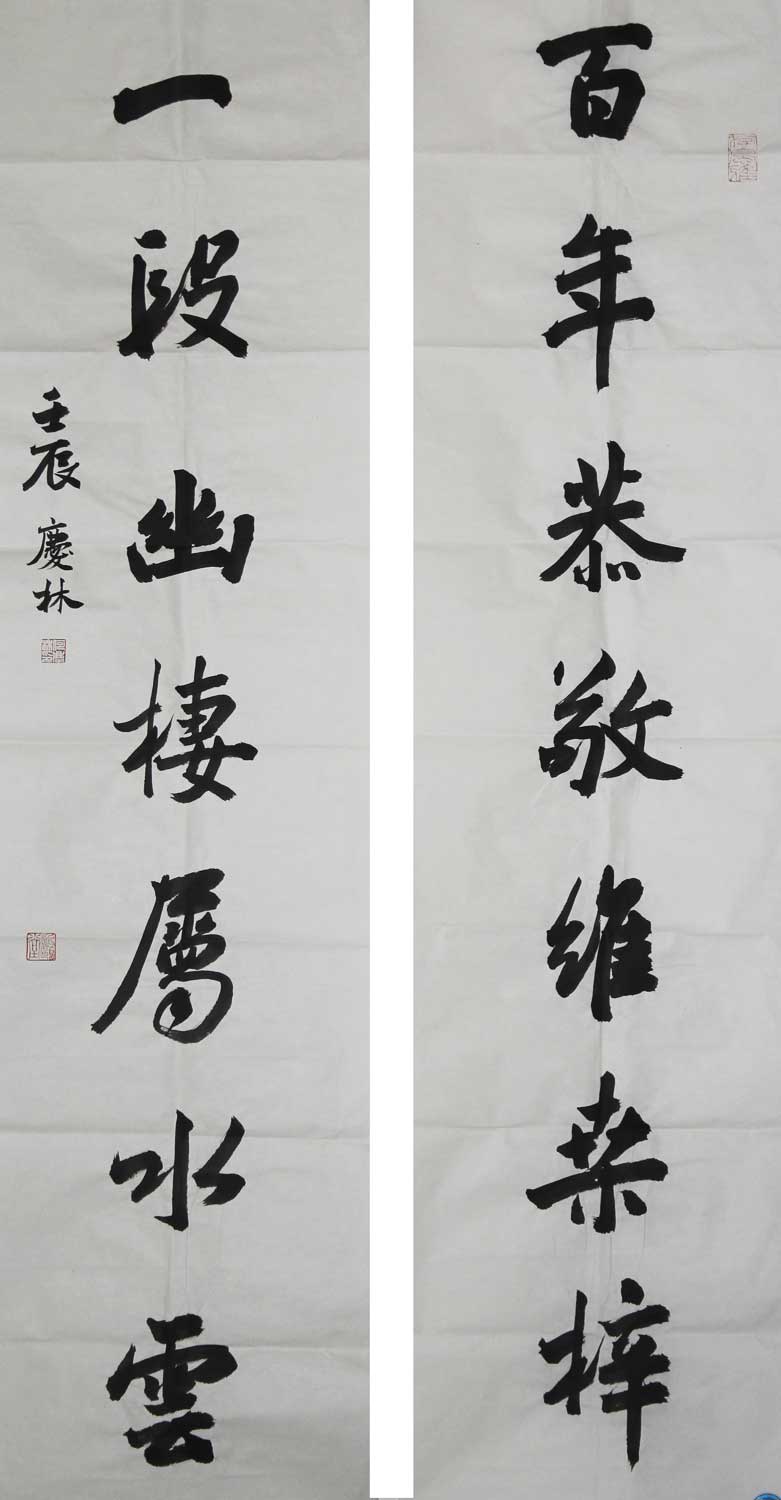 百年恭敬維桒梓
一段幽棲屬水雲
壬辰 慶林